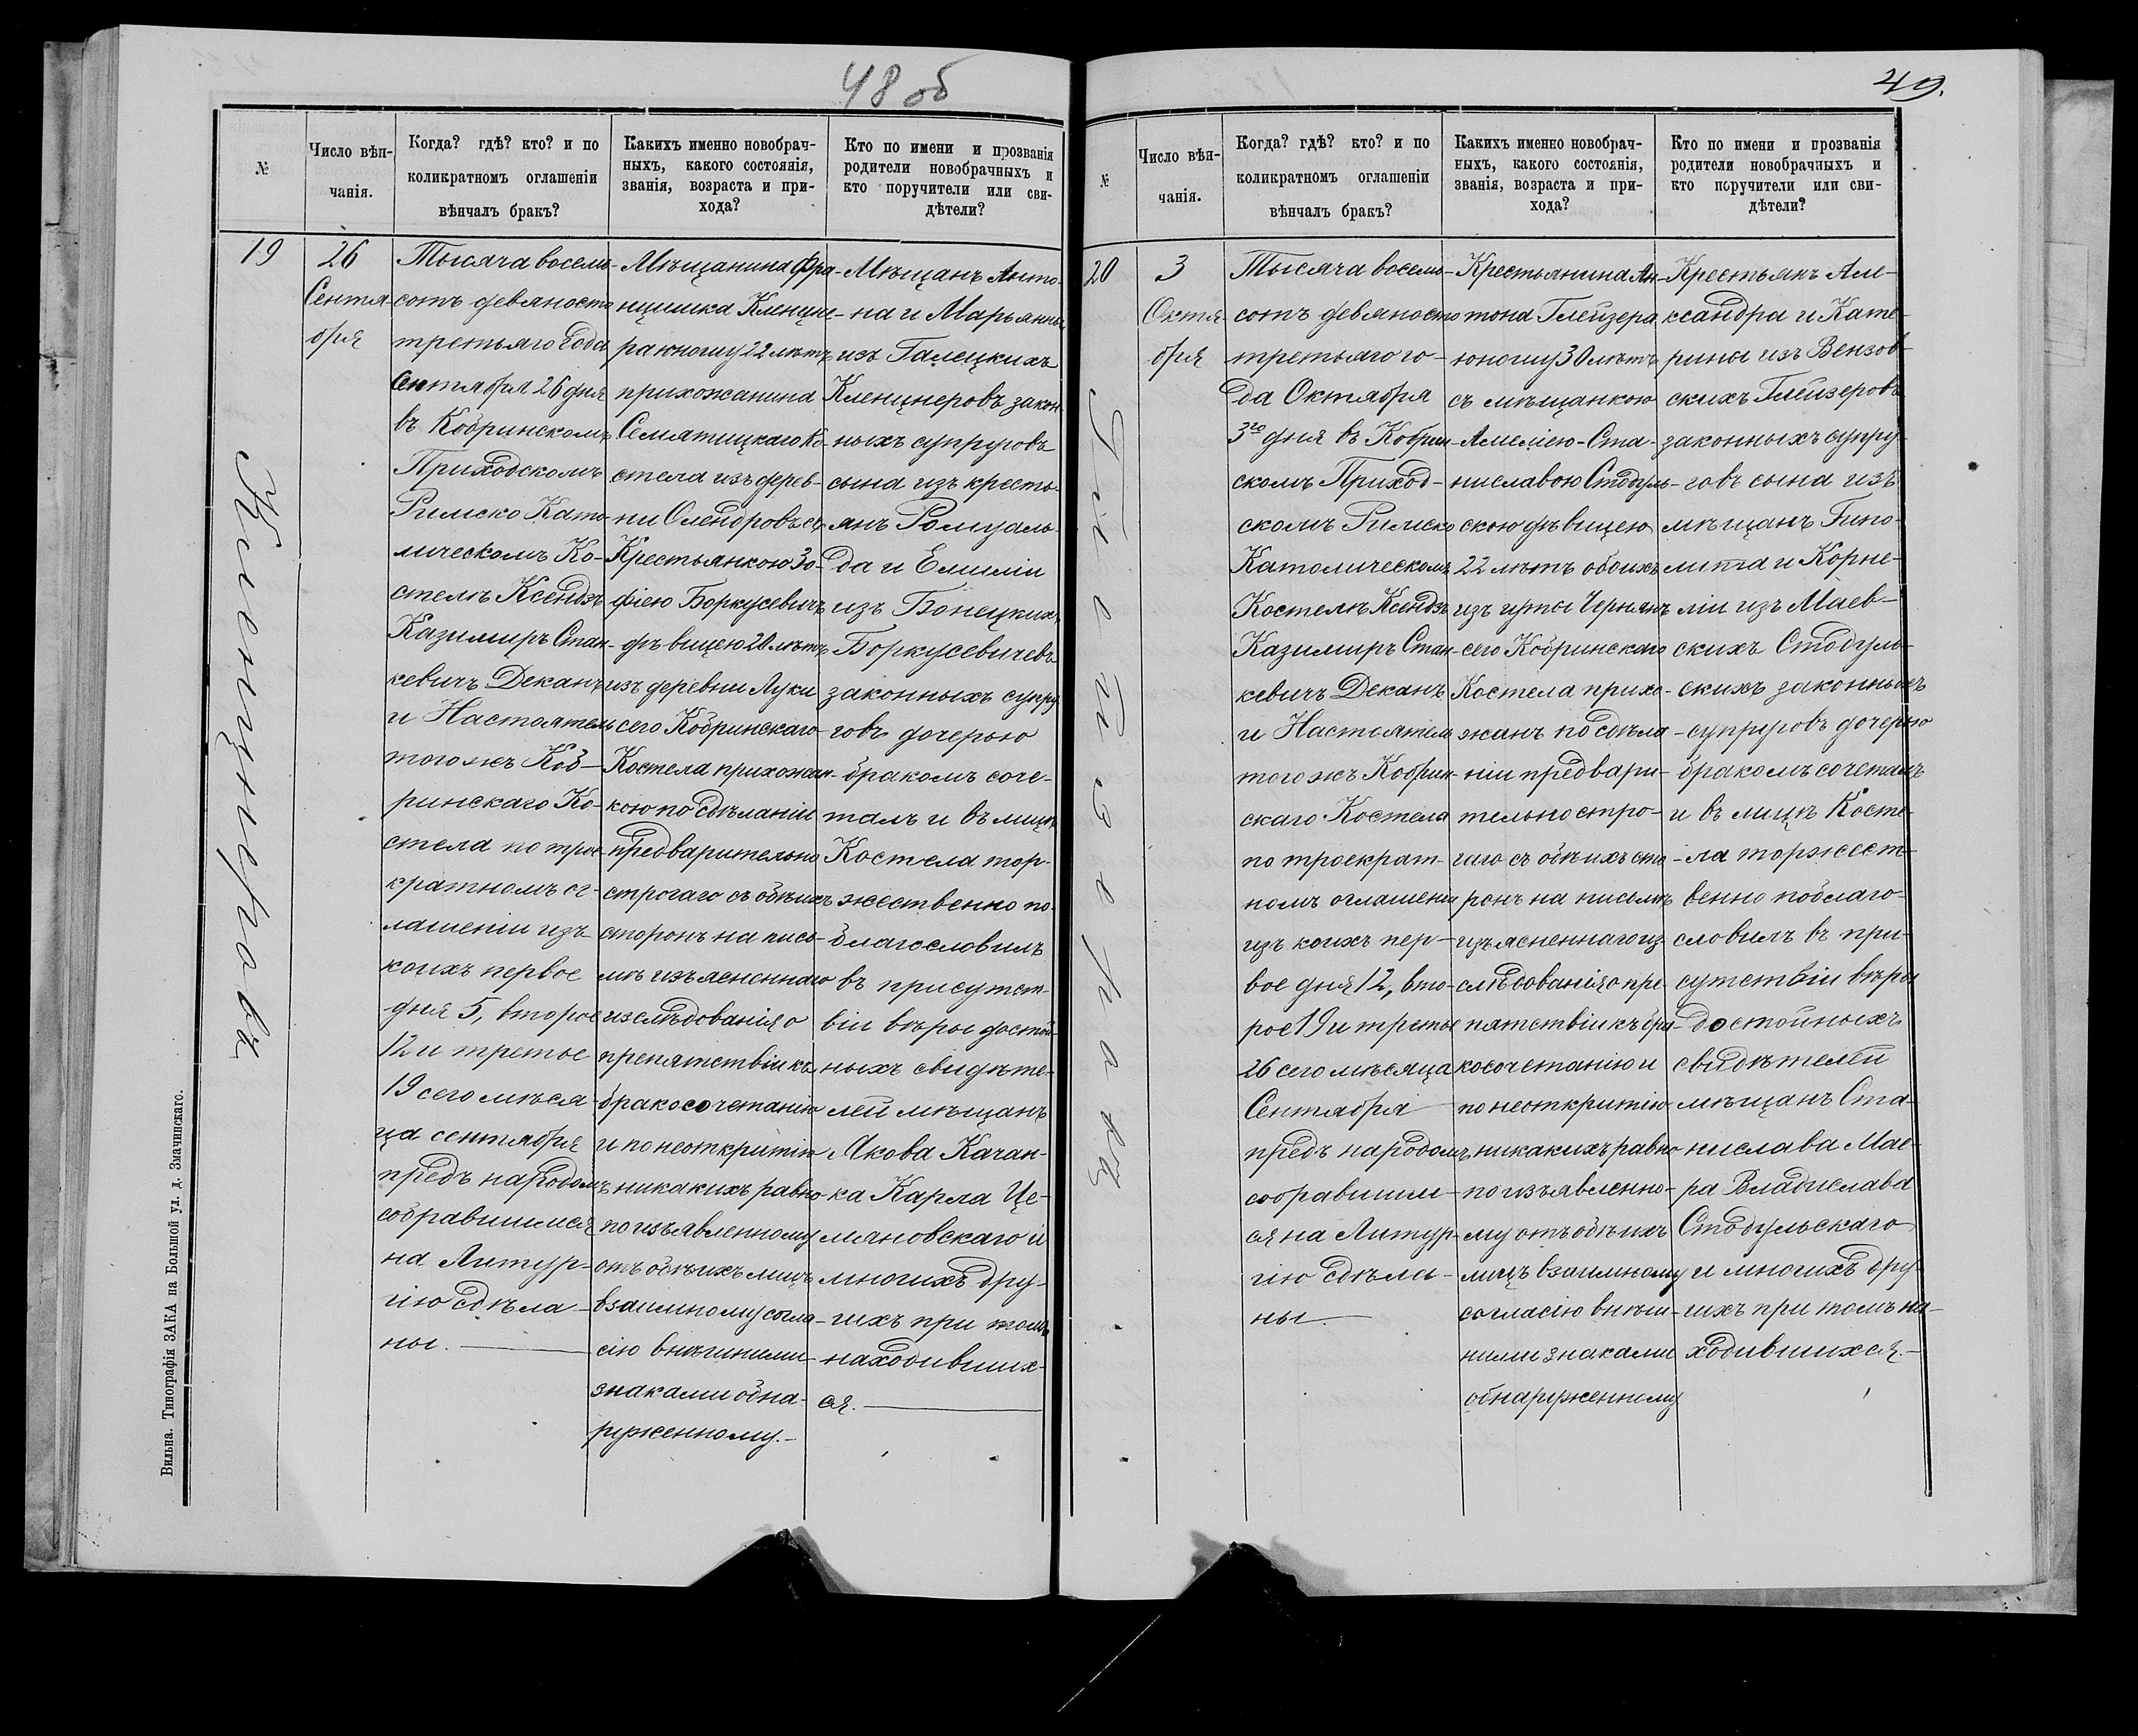 48 об
№
Число вѣн-
чанія.
Когда? гдѣ? кто? и по
коликратномъ оглашеніи
вѣнчалъ бракъ?
Какихъ именно новобрач-
ныхъ, какого состоянія,
званія, возраста и при-
хода?
Кто по имени и прозванія
родители новобрачныхъ и
кто поручители или сви-
дѣтели?
19
Кленцнеровъ
26
Сентя-
бря
Тысяча восемь-
сотъ девяносто
третьяго года
Сентября 26 дня
въ Кобринскомъ
Приходскомъ
Римско Като-
лическомъ Ко-
стелѣ Ксендзъ
Казимиръ Стан-
кевичъ Деканъ
и Настоятель
того жъ Коб-
ринскаго Ко-
стела по трое-
кратномъ ог-
лашеніи изъ
коихъ первое
дня 5, второе
12 и третье
19 сего мѣся-
ца сентября
предъ народомъ
собравшимся
на Литур-
гію сдѣла-
ны.
Мѣщанина Фра-
нцишка Кленцне-
ра юношу 22 лѣтъ
прихожанина
Семятицкаго Ко-
стела изъ дерев-
ни Олендровъ съ
Крестьянкою Зо-
фіею Боркусевичъ
дѣвицею 20 лѣтъ
изъ деревни Луки
сего Кобринскаго
Костела прихожан-
кою по сдѣланіи
предварительно
строгаго съ обѣихъ
сторонъ на пись-
мѣ изъясненнаго
изслѣдованія о
препятствіи къ
бракосочетанію
и по неоткритію
никакихъ равно
по изъявленному
отъ обѣихъ лицъ
взаимному согла-
сію внѣшними
знаками обна-
руженному.-
Мѣщанъ Анто-
на и Марьянны
изъ Галецкихъ
Кленцнеровъ закон-
ныхъ супруговъ
сына изъ кресть-
янъ Ромуаль-
да и Емиліи
изъ Бонецкихъ
Боркусевичевъ
законныхъ супру-
говъ дочерью
бракомъ соче-
талъ и въ лицѣ
Костела тор-
жественно по-
благословилъ
въ присутст-
віи вѣры достой-
ныхъ свидѣте-
лей мѣщанъ
Якова Качан-
ка Карла Це-
мяновскаго и
многихъ дру-
гихъ при томъ
находивших-
ся.
Вильна. Типографія ЗАКА на Большой ул. д. Значинскаго.
49.
№
Число вѣн-
чанія.
Когда? гдѣ? кто? и по
коликратномъ оглашеніи
вѣнчалъ бракъ?
Какихъ именно новобрач-
ныхъ, какого состоянія,
званія, возраста и при-
хода?
Кто по имени и прозванія
родители новобрачныхъ и
кто поручители или сви-
дѣтели?
20
Глейзеровъ
3
Октя-
бря
Тысяча восемь-
сотъ девяносто
третьяго го-
да Октября
3го дня въ Кобрин-
скомъ Приход-
скомъ Римско
Католическомъ
Костелѣ Ксендзъ
Казимиръ Стан-
кевичъ Деканъ
и Настоятель
того жъ Кобрин-
скаго Костела
по троекрат-
номъ оглашеніи
изъ коихъ пер-
вое дня 12, вто-
рое 19 и третье
26 сего мѣсяца
Сентября
предъ народомъ
собравшим-
ся на Литур-
гію сдѣла-
ны
Крестьянина Ан-
тона Глейзера
юношу 30 лѣтъ
съ мѣщанкою
Амеліею-Ста-
ниславою Стодуль-
скою дѣвицею
22 лѣтъ обоихъ
изъ
сего Кобринскаго
Костела прихо-
жанъ по сдѣла-
ніи предвари-
тельно стро-
гаго съ обѣихъ сто-
ронъ на письмѣ
изъясненнаго из-
слѣдованія о пре-
пятствіи къ бра-
косочетанію и
по неоткритію
никакихъ равно
по изъявленно-
му отъ обѣихъ
лицъ взаимному
согласію внѣш-
ними знаками
обнаруженному
Крестьянъ Але-
ксандра и Кате-
рины изъ Вензов-
скихъ Глейзеровъ
законныхъ супру-
говъ сына изъ
мѣщанъ Гипо-
лита и Корне-
ліи изъ Маев-
скихъ Стодуль-
скихъ законныхъ
супруговъ дочерью
бракомъ сочеталъ
и въ лицѣ Косте-
ла торжест-
венно поблаго-
словилъ въ при-
сутствіи вѣры
достойныхъ
свидѣтелей
мѣщанъ Ста-
нислава Мае-
ра Владислава
Стодульскаго
и многихъ дру-
гихъ при томъ на-
ходившихся.-